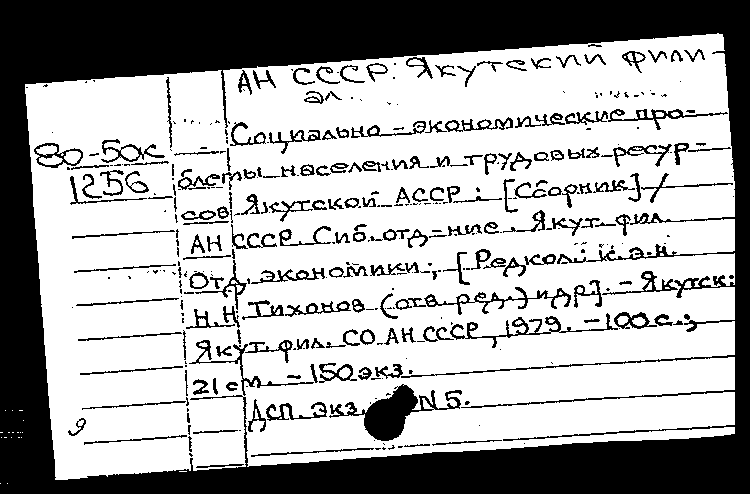 АН СССР. Якутский фили-
ал.
Социально-экономические про-
80-50к
блемы населения и трудовых ресур-
1256
сов Якутской АССР: [Сборник] /
АН СССР. Сиб. отд-ние. Якут. фил.
Отд. экономики; [Редкол.: к.э.н.
Н.Н. Тихонов (отв. ред.) и др]. - Якутск:
Якут. фил. СО АН СССР, 1979. - 100 с.;
21 см. - 150 экз.
Дсп. экз. N 5.